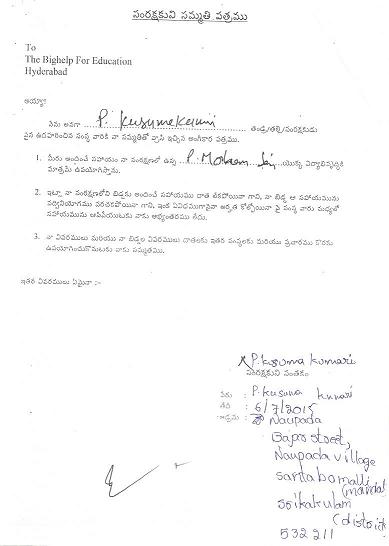 సంరక్షకుని సమ్మతి పత్రము
To
The Bighelp For Education
Hyderabad
అయ్యా!
నేను అనగా P. Kusumakumari తండ్రి/తల్లి/సంరక్షకుడు
పైన ఉదహరించిన సంస్థ వారికి నా సమ్మతితో వ్రాసి ఇచ్చిన అంగీకార పత్రము.
1. మీరు అందించే సహాయం నా సంరక్షణలో ఉన్న P. Mohan Sai యొక్క విద్యాభివృద్ధికి
మాత్రమే ఉపయోగిస్తాను.
2. ఇట్లా నా సంరక్షణలోని బిడ్డకు అందించే సహాయము దాత లేకపోయినా గాని, నా బిడ్డ ఆ సహాయమును
సద్వినియోగము పరచకపోయినా గాని, ఇంక ఏవిధముగానైనా అర్హత కోల్పోయినా పై సంస్థ వారు మధ్యలో
సహాయమును ఆపివేయుటకు నాకు అభ్యంతరము లేదు.
3. నా వివరములు మరియు నా బిడ్డల వివరములు దాతలకు ఇతర సంస్థలకు మరియు ప్రచారము కొరకు
ఉపయోగించుకొనుటకు నాకు సమ్మతము.
ఇతర వివరములు ఏమైనా :-
P. Kusuma kumari
సంరక్షకుని సంతకం
పేరు : P. Kusuma kumari
తేది : 6/7/2015
అడ్రసు : Naupada
Bajro street,
Naupada village
santabomalli (mandal)
srikakulam
(district)
532211